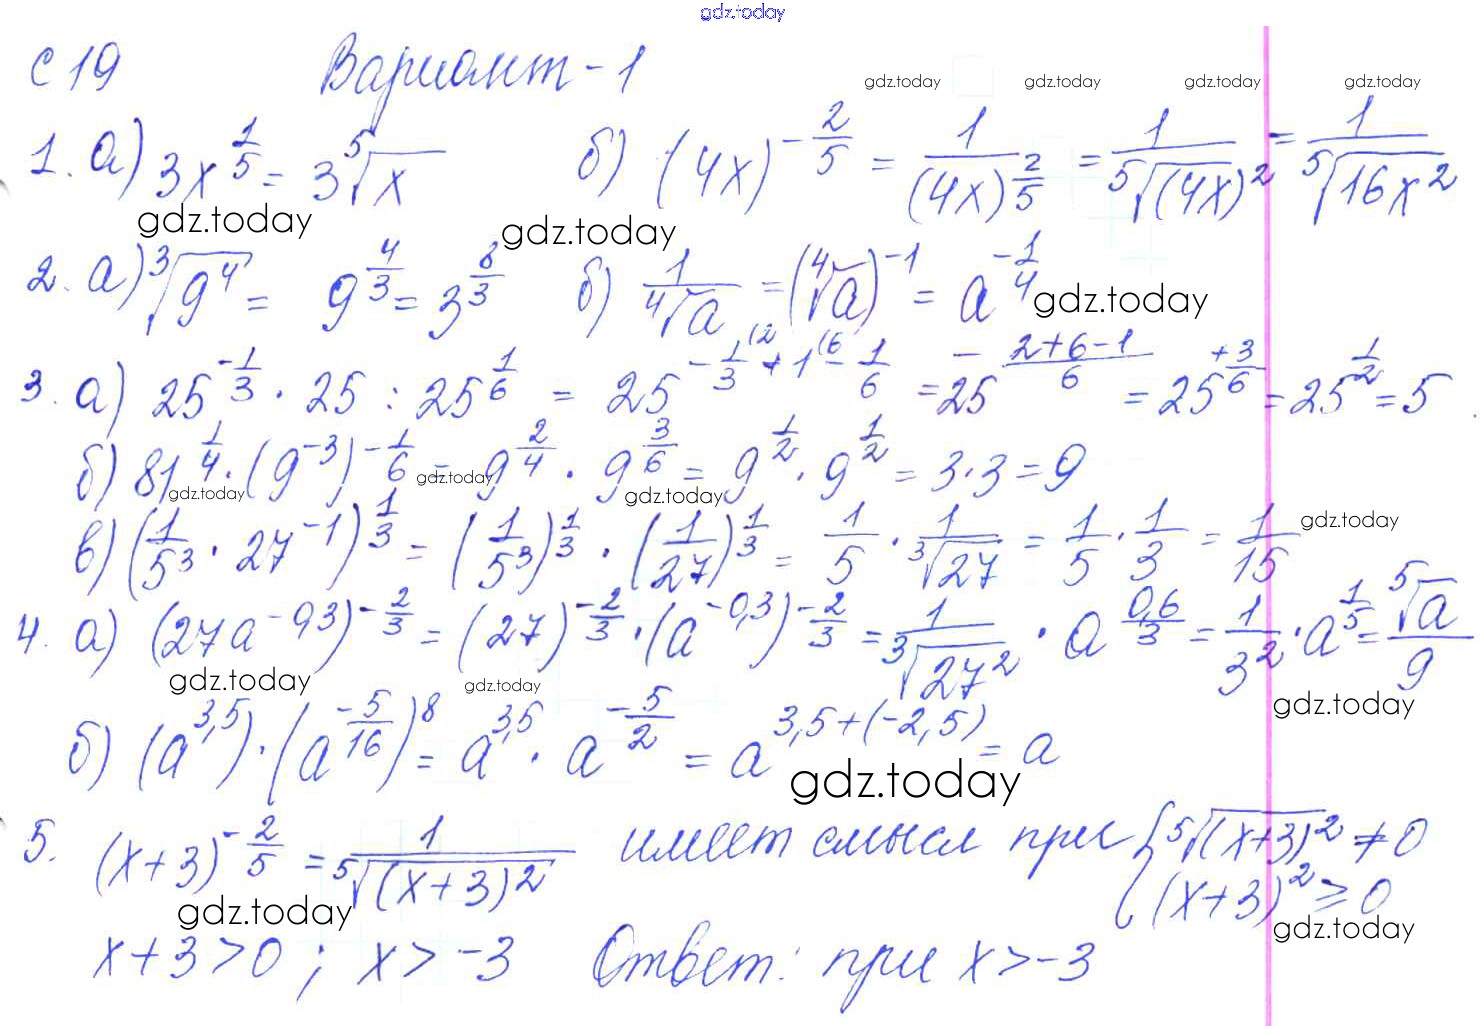 gdz.today
С 19 Вариант-1
gdz.today gdz.today gdz.today gdz.today
1. а) 3x^(1/5) = 3⁵√x б) (4x)^(-2/5) = 1/(4x)^(2/5) = 1/⁵√(4x)² = 1/⁵√16x²
gdz.today gdz.today
2. а) ³√9⁴ = 9^(4/3) = 3^(8/3) б) 1/⁴√a = (⁴√a)^(-1) = a^(-1/4)
gdz.today
3. а) 25^(-1/3) · 25 : 25^(1/6) = 25^(-1/3 (2 + 1 (6 - 1/6) = 25^(-(2+6-1)/6) = 25^(+3/6) = 25^(1/2) = 5
б) 81^(1/4) · (9^(-3))^(-1/6) = 9^(2/4) · 9^(3/6) = 9^(1/2) · 9^(1/2) = 3·3 = 9
gdz.today gdz.today gdz.today
в) (1/5³ · 27^(-1))^(1/3) = (1/5³)^(1/3) · (1/27)^(1/3) = 1/5 · 1/³√27 = 1/5 · 1/3 = 1/15
gdz.today
4. а) (27a^(-0,3))^(-2/3) = (27)^(-2/3) · (a^(-0,3))^(-2/3) = 1/³√27² · a^(0,6/3) = 1/3² · a^(1/5) = ⁵√a/9
gdz.today gdz.today gdz.today
б) (a^(3,5)) · (a^(-5/16))⁸ = a^(3,5) · a^(-5/2) = a^(3,5+(-2,5)) = a
gdz.today
5. (x+3)^(-2/5) = 1/⁵√(x+3)² имеет смысл при { ⁵√(x+3)² ≠ 0
(x+3)² ≥ 0
gdz.today gdz.today
x+3 > 0 ; x > -3 Ответ: при x > -3